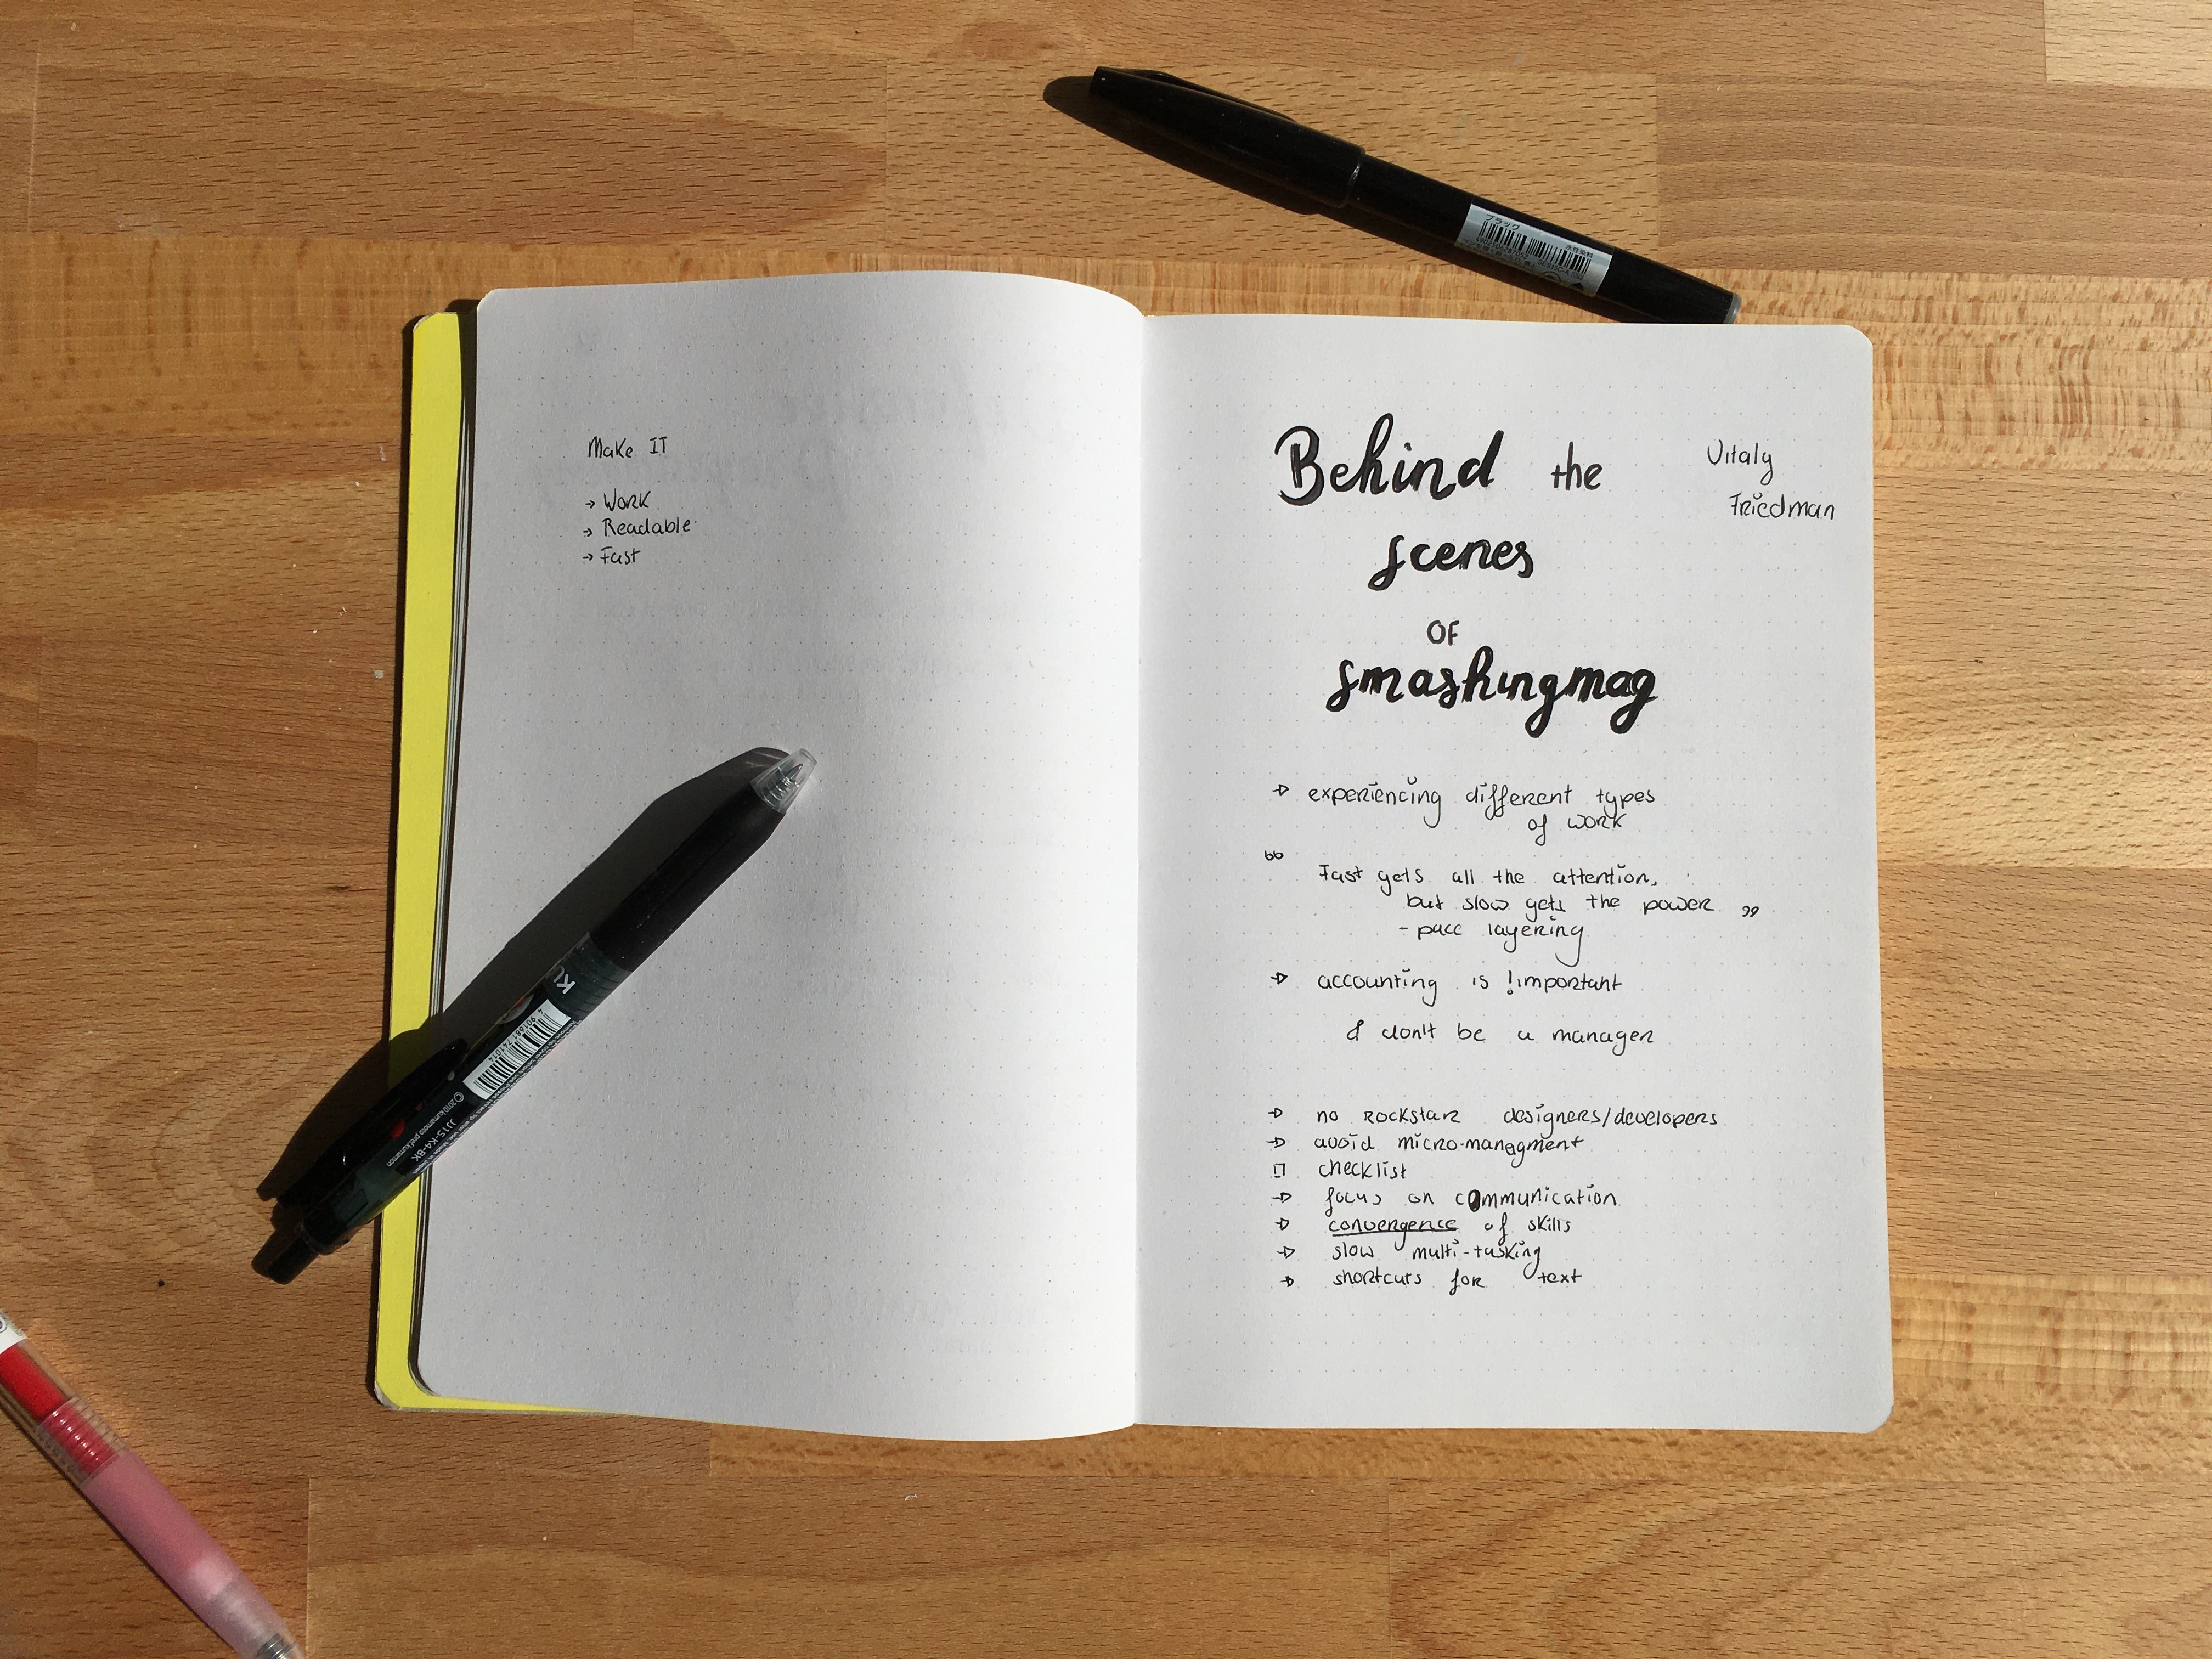 Make IT
→ Work
→ Readable
→ Fast
Behind the
scenes
OF
smashingmag
Vitaly
Friedman
→ experiencing different types
of work
“
Fast gets all the attention,
but slow gets the power ”
- pace layering
→ accounting is !important
& don't be a manager
→ no rockstar designers/developers
→ avoid micro-managment
□ checklist
→ focus on communication
→ convergence of skills
→ slow multi-tasking
→ shortcuts for text
ブラック
4 901681 741014
JJ15-K4-BK
©2010 kumamoto pref.kumamon